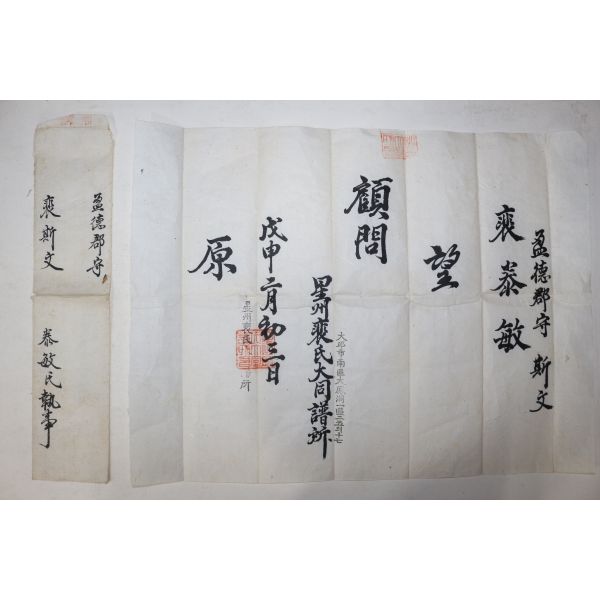 盈德郡守 斯文
裵泰敏
望
顧問
大邱市南區大
星州裵氏大同譜所
戊申二月初三日
星州裵氏 譜所
原
盈德郡守
裵斯文 泰敏氏執事